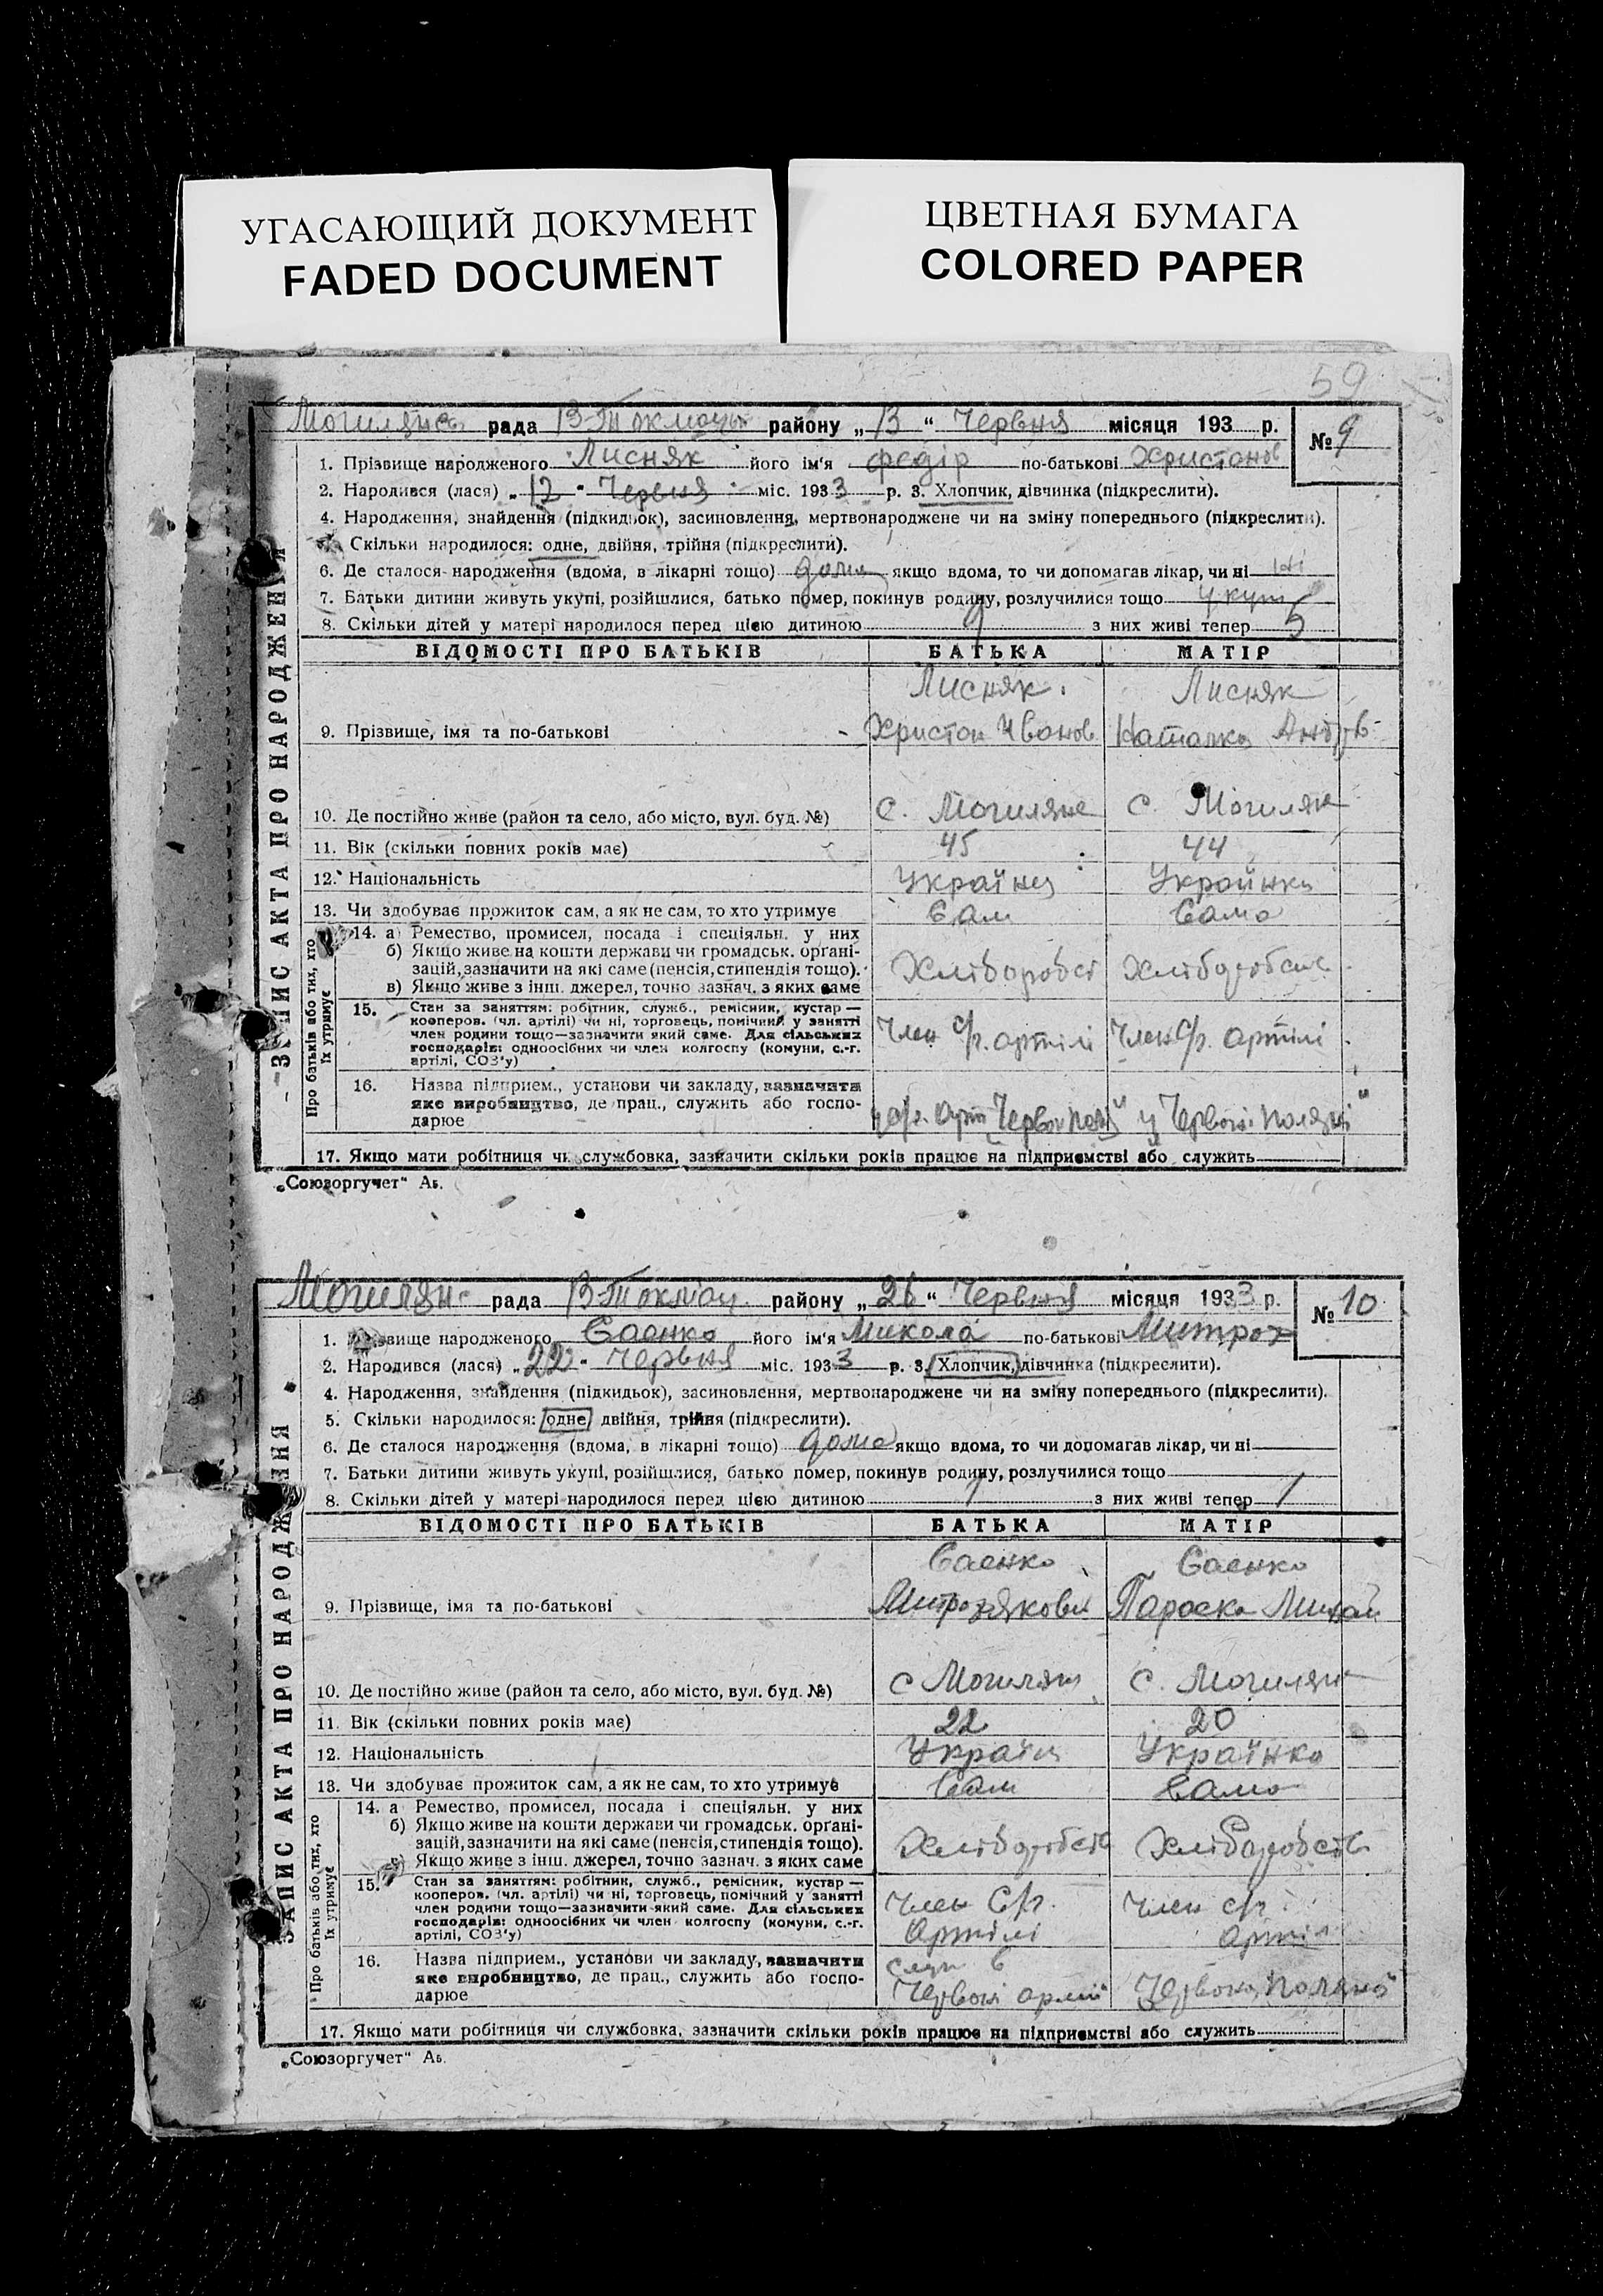 УГАСАЮЩИЙ ДОКУМЕНТ
FADED DOCUMENT
ЦВЕТНАЯ БУМАГА
COLORED PAPER
59
рада В-Токмацьк району „13“ Червня місяця 193 р.
№ 9
ЗАПИС АКТА ПРО НАРОДЖЕННЯ
1. Прізвище народженого Лисняк його ім'я Федір по-батькові Христонов
2. Народився (лася) „12“ Червня міс. 1933 р. 3. Хлопчик, дівчинка (підкреслити).
4. Народження, знайдення (підкидьок), засиновлення, мертвонароджене чи на зміну попереднього (підкреслити).
Скільки народилося: одне, двійня, трійня (підкреслити).
6. Де сталося народження (вдома, в лікарні тощо) дома якщо вдома, то чи допомагав лікар, чи ні ні
7. Батьки дитини живуть укупі, розійшлися, батько помер, покинув родину, розлучилися тощо укупі
8. Скільки дітей у матері народилося перед цією дитиною 9 з них живі тепер 5
ВІДОМОСТІ ПРО БАТЬКІВ БАТЬКА МАТІР
Лисняк Лисняк
9. Прізвище, імя та по-батькові Христон Иванов Наталка
10. Де постійно живе (район та село, або місто, вул. буд. №) с. Могиляне с. Могилян
11. Вік (скільки повних років має) 45 44
12. Національність Українц Украйнка
13. Чи здобуває прожиток сам, а як не сам, то хто утримує Сам Сама
Про батьків або тих, хто їх утримує
14. а) Ремество, промисел, посада і спеціяльн. у них
б) Якщо живе на кошти держави чи громадськ. органі-
зацій, зазначити на які саме (пенсія, стипендія тощо).
в) Якщо живе з інш. джерел, точно зазнач. з яких саме
Хліборобст
15. Стан за заняттям: робітник, служб., ремісник, кустар —
кооперов. (чл. артілі) чи ні, торговець, помічний у занятті
член родини тощо—зазначити який саме. Для сільських
господарів: одноосібних чи член колгоспу (комуни, с.-г.
артілі, СОЗ'у)
Член с/г. артілі Член с/г. артілі
16. Назва підприєм., установи чи закладу, зазначити
яке виробництво, де прац., служить або госпо-
дарюе
17. Якщо мати робітниця чи службовка, зазначити скільки років працює на підприємстві або служить
„Союзоргучет“ Аь.
Могилян- рада В-Токмац. району „26“ Червня місяця 1933 р.
№ 10
ЗАПИС АКТА ПРО НАРОДЖЕННЯ
1. Прізвище народженого Саенко його ім'я Микола по-батькові Митроф
2. Народився (лася) „22“ Червня міс. 1933 р. 3. Хлопчик, дівчинка (підкреслити).
4. Народження, знайдення (підкидьок), засиновлення, мертвонароджене чи на зміну попереднього (підкреслити).
5. Скільки народилося: одне двійня, трійня (підкреслити).
6. Де сталося народження (вдома, в лікарні тощо) дома якщо вдома, то чи допомагав лікар, чи ні
7. Батьки дитини живуть укупі, розійшлися, батько помер, покинув родину, розлучилися тощо
8. Скільки дітей у матері народилося перед цією дитиною 1 з них живі тепер 1
ВІДОМОСТІ ПРО БАТЬКІВ БАТЬКА МАТІР
Саенко Саенко
9. Прізвище, імя та по-батькові Параска Михай
10. Де постійно живе (район та село, або місто, вул. буд. №) с Могилян с. Могилян
11. Вік (скільки повних років має) 22 20
12. Національність Україн Українка
13. Чи здобуває прожиток сам, а як не сам, то хто утримує Сам Сама
Про батьків або тих, хто їх утримує
14. а Ремество, промисел, посада і спеціяльн. у них
б) Якщо живе на кошти держави чи громадськ. органі-
зацій, зазначити на які саме (пенсія, стипендія тощо).
в) Якщо живе з інш. джерел, точно зазнач. з яких саме
Хліборобств Хліборобств
15. Стан за заняттям: робітник, служб., ремісник, кустар —
кооперов. (чл. артілі) чи ні, торговець, помічний у занятті
член родини тощо—зазначити який саме. Для сільських
господарів: одноосібних чи член колгоспу (комуни, с.-г.
артілі, СОЗ'у)
Член с/г. Член с/г
Артілі Артіл
16. Назва підприєм., установи чи закладу, зазначити
яке виробництво, де прац., служить або госпо-
дарюе
Служ в
Червоній армії
17. Якщо мати робітниця чи службовка, зазначити скільки років працює на підприємстві або служить
„Союзоргучет“ Аь.